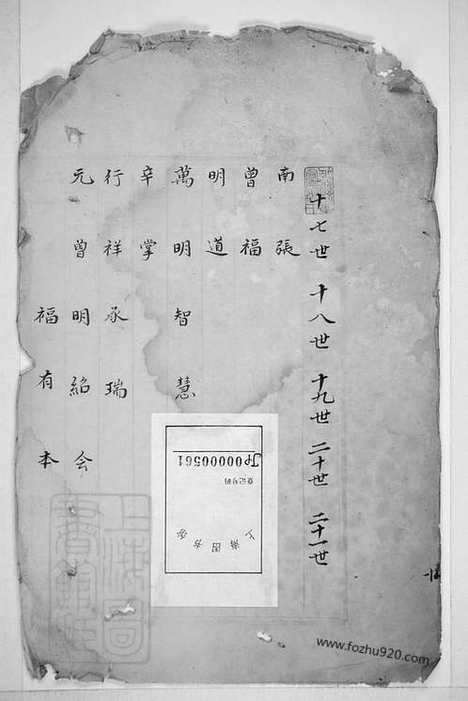 十七世 十八世 十九世 二十世 二十一世
南張
曾福
明道
萬明智慧
辛掌
行祥承瑞
元曾明紹会
福有本
上海图书馆
登记号码
Jp00000561
www.fozhu920.com